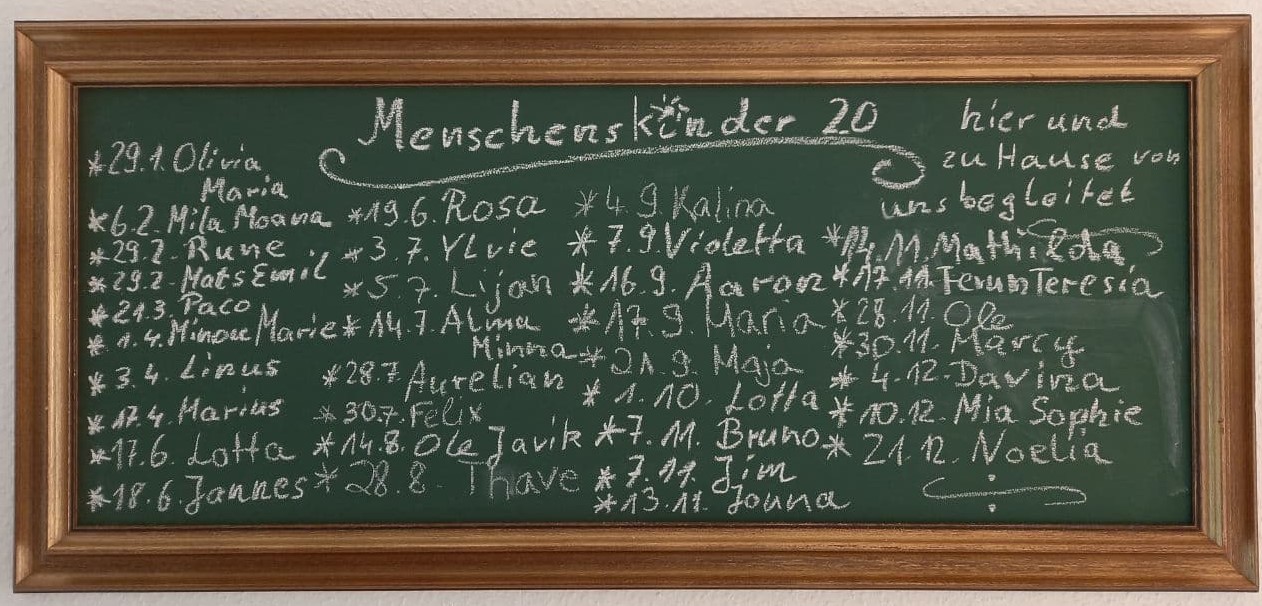 Menschenskinder 20
hier und
zu Hause von
uns begleitet
*29.1. Olivia
Maria
*6.2. Mila Moana
*29.2. Rune
*29.2. Mats Emil
*21.3. Paco
*1.4. Minou Marie
*3.4. Linus
*17.4. Marius
*17.6. Lotta
*18.6. Jannes
*19.6. Rosa
*3.7. Ylvie
*5.7. Lijan
*14.7. Alma
Minna
*28.7. Aurelian
*30.7. Felix
*14.8. Ole Javik
*28.8. Thave
*4.9. Kalina
*7.9. Violetta
*16.9. Aaron
*17.9. Maria
*21.9. Maja
*1.10. Lotta
*7.11. Bruno
*7.11. Jim
*13.11. Jonna
*14.11. Mathilda
*17.11. Teresia
*28.11. Ole
*30.11. Marcy
*4.12. Davina
*10.12. Mia Sophie
*21.12. Noelia